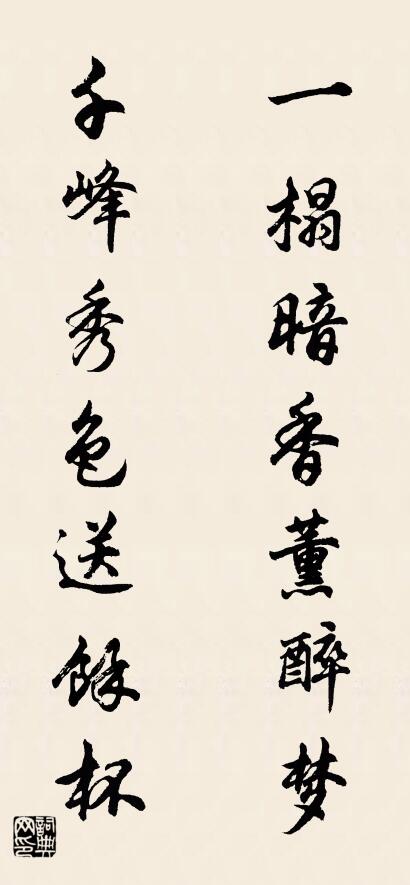 一榻暗香薰醉梦
千峰秀色送餘杯
詞典网印